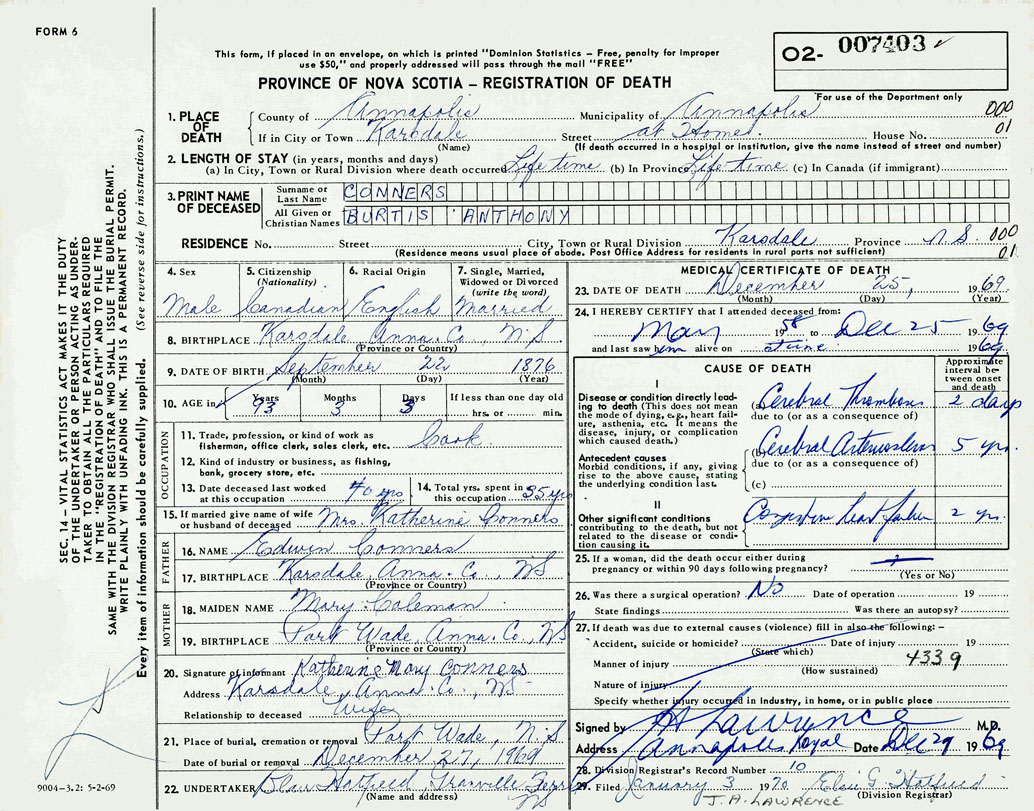 FORM 6
This form, if placed in an envelope, on which is printed "Dominion Statistics – Free, penalty for improper
use $50," and properly addressed will pass through the mail "FREE"
O2- 007403
For use of the Department only
PROVINCE OF NOVA SCOTIA – REGISTRATION OF DEATH
1. PLACE OF DEATH
County of Annapolis Municipality of Annapolis 000
If in City or Town Karsdale Street at Home. House No. 01
(Name) (If death occurred in a hospital or institution, give the name instead of street and number)
2. LENGTH OF STAY (in years, months and days)
(a) In City, Town or Rural Division where death occurred Life time (b) In Province Life time (c) In Canada (if immigrant)
3. PRINT NAME OF DECEASED
Surname or Last Name CONNERS
All Given or Christian Names BURTIS ANTHONY
RESIDENCE No. Street City, Town or Rural Division Karsdale Province N.S. 000
(Residence means usual place of abode. Post Office Address for residents in rural parts not sufficient) 01
4. Sex Male
5. Citizenship (Nationality) Canadian
6. Racial Origin English
7. Single, Married, Widowed or Divorced (write the word) Married
8. BIRTHPLACE Karsdale Anna. Co., N.S
(Province or Country)
9. DATE OF BIRTH September 22 1876
(Month) (Day) (Year)
10. AGE in Years 93 Months 3 Days 3 If less than one day old
hrs. or min.
OCCUPATION
11. Trade, profession, or kind of work as
fisherman, office clerk, sales clerk, etc. Cook
12. Kind of industry or business, as fishing,
bank, grocery store, etc.
13. Date deceased last worked
at this occupation 40 yrs
14. Total yrs. spent in
this occupation 35 yrs
15. If married give name of wife
or husband of deceased Mrs. Katherine Conners
FATHER
16. NAME Edwin Conners
17. BIRTHPLACE Karsdale, Anna. Co., NS
(Province or Country)
MOTHER
18. MAIDEN NAME Mary Coleman
19. BIRTHPLACE Port Wade, Anna. Co, NS
(Province or Country)
20. Signature of informant Katherine Mary Conners
Address Karsdale, Anna. Co., NS
Relationship to deceased Wife
21. Place of burial, cremation or removal Port Wade, N.S
Date of burial or removal December 27, 1969
22. UNDERTAKER Blair Hatfield Granville Ferry NS
(Name and address)
MEDICAL CERTIFICATE OF DEATH
23. DATE OF DEATH December 25, 1969.
(Month) (Day) (Year)
24. I HEREBY CERTIFY that I attended deceased from:
May 1958 to Dec 25 1969
and last saw him alive on 1969.
CAUSE OF DEATH
Approximate interval between onset and death
I
Disease or condition directly leading to death (This does not mean
the mode of dying, e.g., heart failure, asthenia, etc. It means the
disease, injury, or complication which caused death.)
(a) Cerebral Thrombosis 2 days
due to (or as a consequence of)
Antecedent causes
Morbid conditions, if any, giving rise to the above cause, stating
the underlying condition last.
(b) Cerebral Arteriosclerosis 5 yrs.
due to (or as a consequence of)
(c)
II
Other significant conditions
contributing to the death, but not related to the disease or condition causing it.
Congestive heart failure 2 yrs.
25. If a woman, did the death occur either during
pregnancy or within 90 days following pregnancy?
(Yes or No)
26. Was there a surgical operation? No Date of operation 19
State findings Was there an autopsy?
27. If death was due to external causes (violence) fill in also the following:–
Accident, suicide or homicide? Date of injury 19
(State which)
Manner of injury 4339
(How sustained)
Nature of injury
Specify whether injury occurred in Industry, in home, or in public place
Signed by JA Lawrence M.D.
Address Annapolis Royal Date Dec 29 1969
28. Division Registrar's Record Number 10
29. Filed January 3 1970 Elsie G. Hatfield
J. A. LAWRENCE (Division Registrar)
SEC. 14 – VITAL STATISTICS ACT MAKES IT THE DUTY
OF THE UNDERTAKER OR PERSON ACTING AS UNDER-
TAKER TO OBTAIN ALL THE PARTICULARS REQUIRED
IN THE "REGISTRATION OF DEATH" AND TO FILE THE
SAME WITH THE DIVISION REGISTRAR WHO SHALL ISSUE THE BURIAL PERMIT.
WRITE PLAINLY WITH UNFADING INK. THIS IS A PERMANENT RECORD.
Every item of information should be carefully supplied. (See reverse side for instructions.)
9004–3.2: 5-2-69